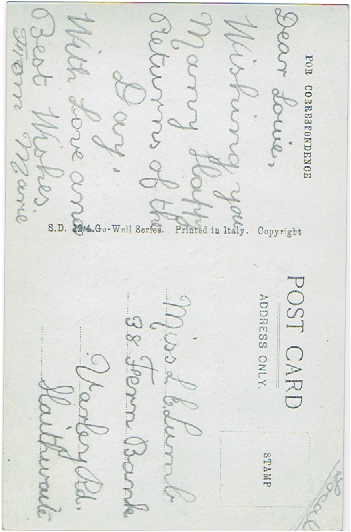 FOR CORRESPONDENCE
Dear Louie,
Wishing you
Many Happy
Returns of the
Day.
With Love and
Best Wishes.
From Marie
S.D. Go-Well Series. Printed in Italy. Copyright
POST CARD
ADDRESS ONLY.
STAMP
Miss L Lumb
38 Fern Bank
Varley Rd.
Slaithwaite